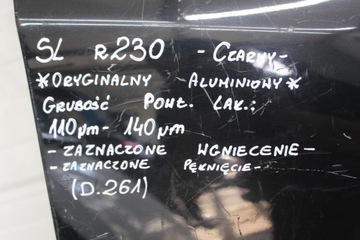 SL R230 - CZARNY -
*ORYGINALNY - ALUMINIOWY*
GRUBOŚĆ POWŁ. LAK.:
110µm - 140µm
- ZAZNACZONE WGNIECENIE -
- ZAZNACZONE PĘKNIĘCIE -
(D.261)